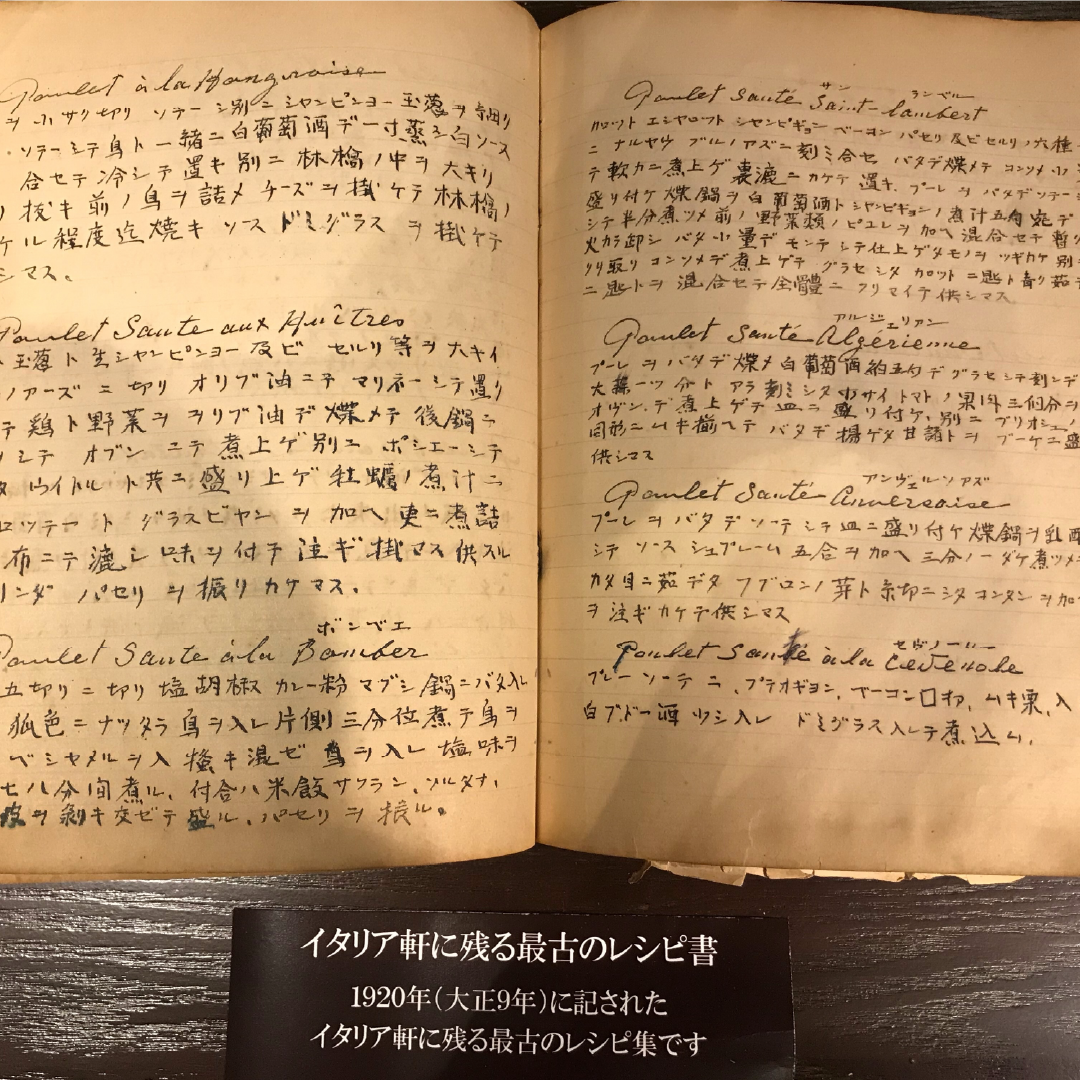 Poulet à la Hongroise
ヲ小サク切リ ソテーシ別ニシャンピンヨー玉葱ヲ
ソテーシテ鳥ト一緒ニ白葡萄酒デ一寸蒸シ白ソース
合セテ冷シテ置キ別ニ林檎ノ中ヲ大キク
抜キ前ノ鳥ヲ詰メチーズヲ掛ケテ林檎ノ
ケル程度迄焼キソースドミグラスヲ掛ケテ
シマス。
Poulet Saute aux Huîtres
玉葱ト生シャンピンヨー及ビ セルリ等ヲ大キイ
ノアーズニ切リ オリブ油ニテ マリネーシテ置リ
テ鶏ト野菜ヲヲリブ油デ煠メテ後鍋ニ
シテ オブンニテ煮上ゲ別ニ ポシエーシテ
ウイトルト共ニ盛リ上ゲ牡蠣ノ煮汁ニ
ロッテート グラスビヤンヲ加ヘ更ニ煮詰
布ニテ漉シ味ヲ付テ注ギ掛マス供スル
パセリヲ振リカケマス。
ボンベエ
Poulet Saute à la Bomber
五切リニ切リ塩胡椒カレー粉マブシ鍋ニバタ入レ
狐色ニナッタラ鳥ヲ入レ片側三分位煮テ鳥ヲ
ベシャメルヲ入 混ゼ鳥ヲ入レ塩味ヲ
七八分間煮ル、付合ハ米飯サフラン、ソルタナ、
皮ヲ剝キ交ゼテ盛ル、パセリヲ振ル。
サン ランベル
Poulet sauté Saint-lambert
カロット エシャロット シャンピギョン ベーコン パセリ及ビセルリノ六種
ニ ナルヤウ ブルノアズニ刻ミ合セ バタデ煠メテ コンソメ小
テ軟カニ煮上ゲ裏漉ニカケテ置キ、プーレヲバタデソテー
盛リ付ケ煠鍋ヲ白葡萄酒トシャンピギョンノ煮汁五勺宛デ
シテ半分煮ツメ前ノ野菜類ノピユレヲ加ヘ混合セテ暫
火カラ卸シ バタ小量デモンテシテ仕上ゲタモノヲツギカケ別
リ取リ コンソメデ煮上ゲテ グラセシタ カロット 二匙ト青リ茹
二匙トヲ混合セテ全體ニフリマイテ供シマス
アルジェリアン
Poulet sauté Algérienne
プーレヲバタデ煠メ白葡萄酒約五勺デグラセシテ刻ンデ
大蒜一ツ分ト アラ刻ミシタ小サイトマトノ果肉三個分ヲ
オヴン、デ煮上ゲテ皿ニ盛リ付ケ、別ニブリオシェノ
同形ニムキ揃ヘテ バタデ揚ゲタ甘藷トヲブーケニ盛
供シマス
アンヴェルソアズ
Poulet Sauté Anversoise
プーレヲバタデソーテシテ皿ニ盛リ付ケ煠鍋ヲ乳
シテソースシュプレーム五合ヲ加ヘ三分ノ一ダケ煮ツメ
カタ目ニ茹デタフブロンノ芽ト糸切ニシタコンタンヲ加
ヲ注ギカケテ供シマス
セヴノール
Poulet Sauté à la Cevenole
プレーソーテニ、プテオギヨン、ベーコン口切、ムキ栗、入
白ブドー酒少シ入レ ドミグラス入レテ煮込ム、
イタリア軒に残る最古のレシピ書
1920年(大正9年)に記された
イタリア軒に残る最古のレシピ集です